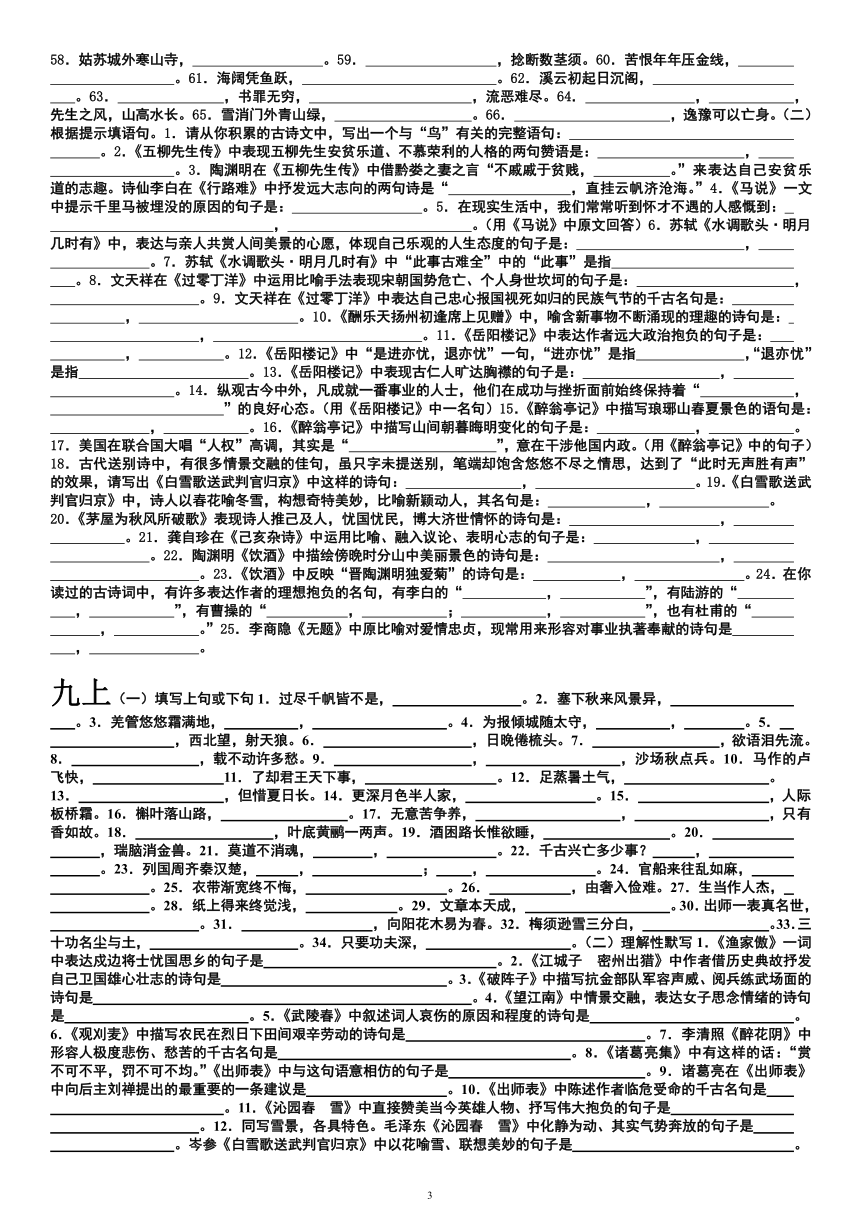 58．姑苏城外寒山寺，__________________。59．__________________，捻断数茎须。60．苦恨年年压金线，________
__________________。61．海阔凭鱼跃，____________________________。62．溪云初起日沉阁，____________________
___。63．________________，书罪无穷，________________________，流恶难尽。64．________________，____________，
先生之风，山高水长。65．雪消门外青山绿，____________________。66．________________________，逸豫可以亡身。（二）
根据提示填语句。1．请从你积累的古诗文中，写出一个与“鸟”有关的完整语句：________________________________
_______。2．《五柳先生传》中表现五柳先生安贫乐道、不慕荣利的人格的两句赞语是：______________________，_____
__________________。3．陶渊明在《五柳先生传》中借黔娄之妻之言“不戚戚于贫贱，___________。”来表达自己安贫乐
道的志趣。诗仙李白在《行路难》中抒发远大志向的两句诗是“__________________，直挂云帆济沧海。”4．《马说》一文
中提示千里马被埋没的原因的句子是：___________________。5．在现实生活中，我们常常听到怀才不遇的人感慨到：_
________________________________，___________________________。（用《马说》中原文回答）6．苏轼《水调歌头·明月
几时有》中，表达与亲人共赏人间美景的心愿，体现自己乐观的人生态度的句子是：________________________，_____
______________。7．苏轼《水调歌头·明月几时有》中“此事古难全”中的“此事”是指__________________________
___。8．文天祥在《过零丁洋》中运用比喻手法表现宋朝国势危亡、个人身世坎坷的句子是：______________________，
______________________。9．文天祥在《过零丁洋》中表达自己忠心报国视死如归的民族气节的千古名句是：_________
___________，____________________。10．《酬乐天扬州初逢席上见赠》中，喻含新事物不断涌现的理趣的诗句是：_
______________________，______________________________。11．《岳阳楼记》中表达作者远大政治抱负的句子是：___
___________，____________。12．《岳阳楼记》中“是进亦忧，退亦忧”一句，“进亦忧”是指________________，“退亦忧”
是指________________________。13．《岳阳楼记》中表现古仁人旷达胸襟的句子是：____________________，__________
__________________。14．纵观古今中外，凡成就一番事业的人士，他们在成功与挫折面前始终保持着“_____________，
_________________________”的良好心态。（用《岳阳楼记》中一名句）15．《醉翁亭记》中描写琅琊山春夏景色的语句是：
______________，______________。16．《醉翁亭记》中描写山间朝暮晦明变化的句子是：______________，____________。
17．美国在联合国大唱“人权”高调，其实是“_____________________”，意在干涉他国内政。（用《醉翁亭记》中的句子）
18．古代送别诗中，有很多情景交融的佳句，虽只字未提送别，笔端却饱含悠悠不尽之情思，达到了“此时无声胜有声”
的效果，请写出《白雪歌送武判官归京》中这样的诗句：________________，______________________。19．《白雪歌送武
判官归京》中，诗人以春花喻冬雪，构想奇特美妙，比喻新颖动人，其名句是：______________，________________。
20．《茅屋为秋风所破歌》表现诗人推己及人，忧国忧民，博大济世情怀的诗句是：______________________，_________
___________。21．龚自珍在《己亥杂诗》中运用比喻、融入议论、表明心志的句子是：______________，____________
______________。22．陶渊明《饮酒》中描绘傍晚时分山中美丽景色的诗句是：________________________，__________
_____________________。23．《饮酒》中反映“晋陶渊明独爱菊”的诗句是：____________，________________。24．在你
读过的古诗词中，有许多表达作者的理想抱负的名句，有李白的“____________，____________”，有陆游的“________
___，____________”，有曹操的“___________，_____________；_____________，_____________”，也有杜甫的“_____
_______，____________。”25．李商隐《无题》中原比喻对爱情忠贞，现常用来形容对事业执著奉献的诗句是_________
___，________________。
九上（一）填写上句或下句1．过尽千帆皆不是，__________________。2．塞下秋来风景异，__________________
___。3．羌管悠悠霜满地，___________，____________________。4．为报倾城随太守，___________，_________。5．__
__________________，西北望，射天狼。6．______________________，日晚倦梳头。7．__________________，欲语泪先流。
8．__________________，载不动许多愁。9．____________________，____________________，沙场秋点兵。10．马作的卢
飞快，____________________11．了却君王天下事，____________________。12．足蒸暑土气，____________________。
13．____________________，但惜夏日长。14．更深月色半人家，__________________。15．____________________，人际
板桥霜。16．槲叶落山路，____________________。17．无意苦争养，______________________，____________________，只有
香如故。18．____________________，叶底黄鹂一两声。19．酒困路长惟欲睡，____________________。20．____________
_______，瑞脑消金兽。21．莫道不消魂，_________，________________。22．千古兴亡多少事？______，____________
_______。23．列国周齐秦汉楚，_______，________________；_____，________________。24．官船来往乱如麻，______
______________。25．衣带渐宽终不悔，____________________。26．____________，由奢入俭难。27．生当作人杰，_
______________。28．纸上得来终觉浅，______________。29．文章本天成，____________________。30．出师一表真名世，
____________________。31．____________________，向阳花木易为春。32．梅须逊雪三分白，____________________。33．三
十功名尘与土，____________________。34．只要功夫深，____________________。（二）理解性默写 1．《渔家傲》一词
中表达戍边将士忧国思乡的句子是________________________。2．《江城子　密州出猎》中作者借历史典故抒发
自己卫国雄心壮志的诗句是________________________________。3．《破阵子》中描写抗金部队军容声威、阅兵练武场面的
诗句是______________________________________________________。4．《望江南》中情景交融，表达女子思念情绪的诗句
是__________________________。5．《武陵春》中叙述词人哀伤的原因和程度的诗句是____________________________。
6．《观刈麦》中描写农民在烈日下田间艰辛劳动的诗句是________________________________。7．李清照《醉花阴》中
形容人极度悲伤、愁苦的千古名句是__________________________________________。8．《诸葛亮集》中有这样的话：“赏
不可不平，罚不可不均。”《出师表》中与这句语意相仿的句子是____________________________。9．诸葛亮在《出师表》
中向后主刘禅提出的最重要的一条建议是____________________。10．《出师表》中陈述作者临危受命的千古名句是____
_________________________。11．《沁园春　雪》中直接赞美当今英雄人物、抒写伟大抱负的句子是__________________
____________________。12．同写雪景，各具特色。毛泽东《沁园春　雪》中化静为动、其实气势奔放的句子是______
__________________。岑参《白雪歌送武判官归京》中以花喻雪、联想美妙的句子是________________________________。
3